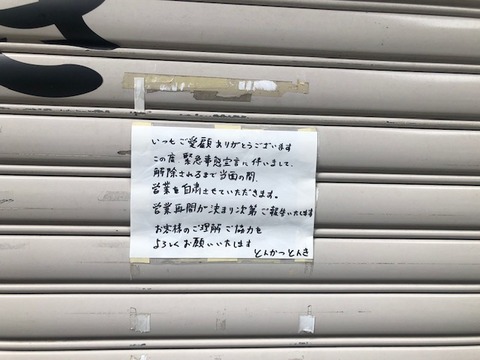 いつもご愛顧ありがとうございます
この度、緊急事態宣言に伴いまして、
解除されるまで当面の間、
営業を自粛させていただきます。
営業再開が決まり次第ご報告いたします
お客様のご理解ご協力を
よろしくお願いいたします
とんかつとんき